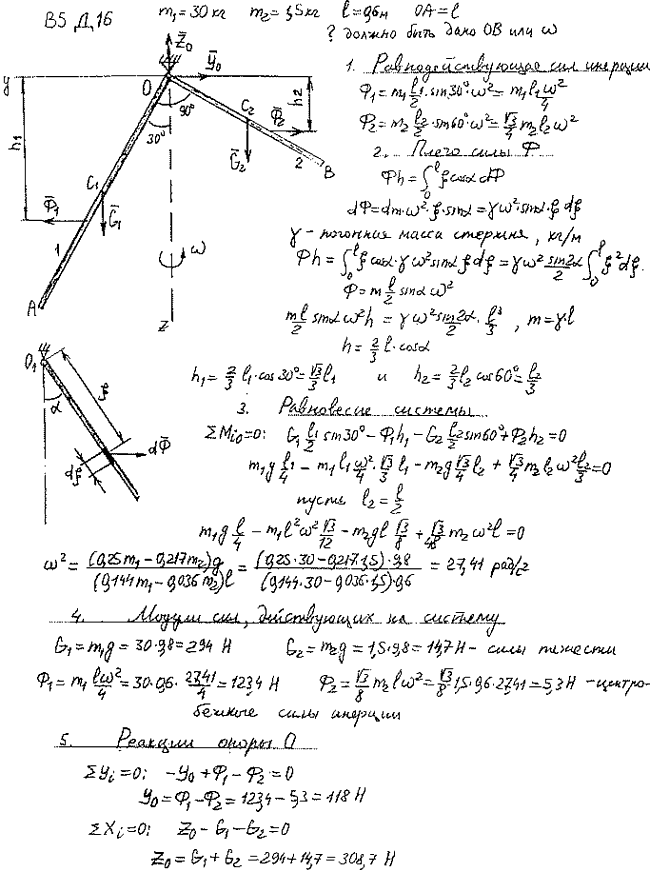 В5 Д16 m₁=30кг m₂=1,5кг l=0,6м OA=l
? должно быть дано OB или ω
Z̄₀
ȳ₀
y
O
h₂
90°
30°
C₂
Φ̄₂
Ḡ₂
2
B
h₁
C₁
Φ̄₁
Ḡ₁
1
ω
A
Z
1. Равнодействующие сил инерции
Φ₁=m₁ l₁/2·sin30°·ω²=m₁l₁ω²/4
Φ₂=m₂ l₂/2·sin60°·ω²=√3/4 m₂l₂ω²
2. Плечо силы Φ
Φh=∫₀ˡ ξcosα dΦ
dΦ=dm·ω²·ξ·sinα=γω²·sinα·ξ dξ
γ - погонная масса стержня, кг/м
Φh=∫₀ˡ ξcosα·γω²sinα ξdξ=γω² sin2α/2 ∫₀ˡ ξ²dξ.
Φ=m l/2 sinα ω²
ml/2 sinα ω²h = γω² sin2α/2 · l³/3 , m=γ·l
h=2/3 l·cosα
h₁=2/3 l₁·cos30°=√3/3 l₁ и h₂=2/3 l₂cos60°=l₂/3
O₁
α
ξ
dΦ̄
dξ
3. Равновесие системы
ΣMᵢ₀=0: G₁ l₁/2 sin30°-Φ₁h₁-G₂ l₂/2 sin60°+Φ₂h₂=0
m₁g l₁/4 - m₁l₁ ω²/4·√3/3 l₁ - m₂g √3/4 l₂ + √3/4 m₂l₂ω² l₂/3=0
пусть l₂=l/2
m₁g l/4 - m₁l²ω² √3/12 - m₂gl √3/8 + √3/48 m₂ω²l=0
ω²= (0,25m₁-0,217m₂)g/(0,144m₁-0,036m₂)l = (0,25·30-0,217·1,5)·9,8/(0,144·30-0,036·1,5)·0,6 = 27,41 рад/с²
4. Модули сил, действующих на систему
G₁=m₁g=30·9,8=294 Н G₂=m₂g=1,5·9,8=14,7Н - силы тяжести
Φ₁=m₁ lω²/4=30·0,6·27,41/4=123,4 Н Φ₂=√3/8 m₂lω²=√3/8 1,5·0,6·27,41=5,3Н - центро-
бежные силы инерции
5. Реакции опоры O
Σyᵢ=0: -y₀+Φ₁-Φ₂=0
y₀=Φ₁-Φ₂=123,4-5,3=118 Н
ΣXᵢ=0: Z₀-G₁-G₂=0
Z₀=G₁+G₂=294+14,7=308,7 Н